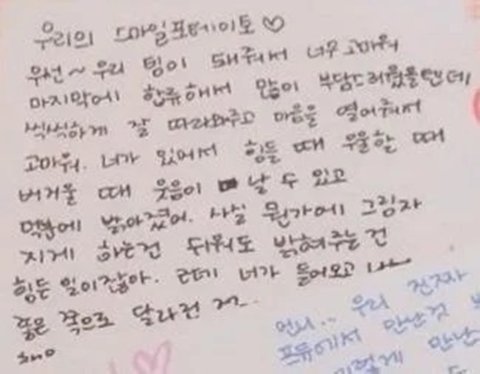 우리의 스마일포테이토♡
우선~ 우리 팀이 돼줘서 너무 고마워
마지막에 합류해서 많이 부담스러웠을텐데
씩씩하게 잘 따라와주고 마음을 열어줘서
고마워. 너가 있어서 힘들 때 우울할 때
버거울 때 웃음이 날 수 있고
덕분에 밝아졌어. 사실 뭔가에 그림자
지게 하는건 쉬워도 밝혀주는건
힘든 일이잖아. 근데 너가 들어오고
좋은 쪽으로 달라진 거..
언니... 우리 진짜
에서 만난것
이렇게 만난